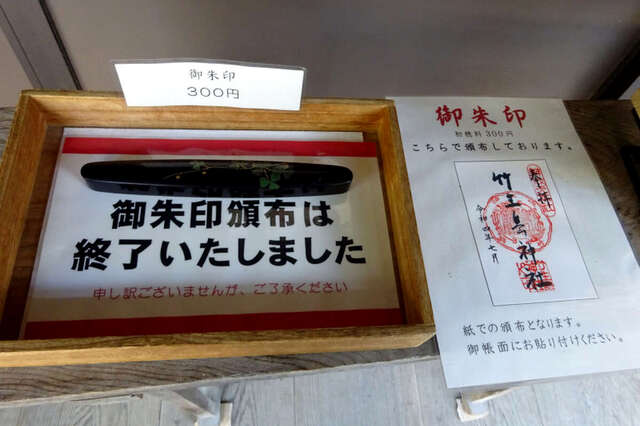 御朱印
300円
御朱印頒布は
終了いたしました
申し訳ございませんが、ご了承ください
御朱印
初穂料300円
こちらで頒布しております。
奉拝
竹生島神社
令和四年七月
紙での頒布となります。
御帳面にお貼り付けください。